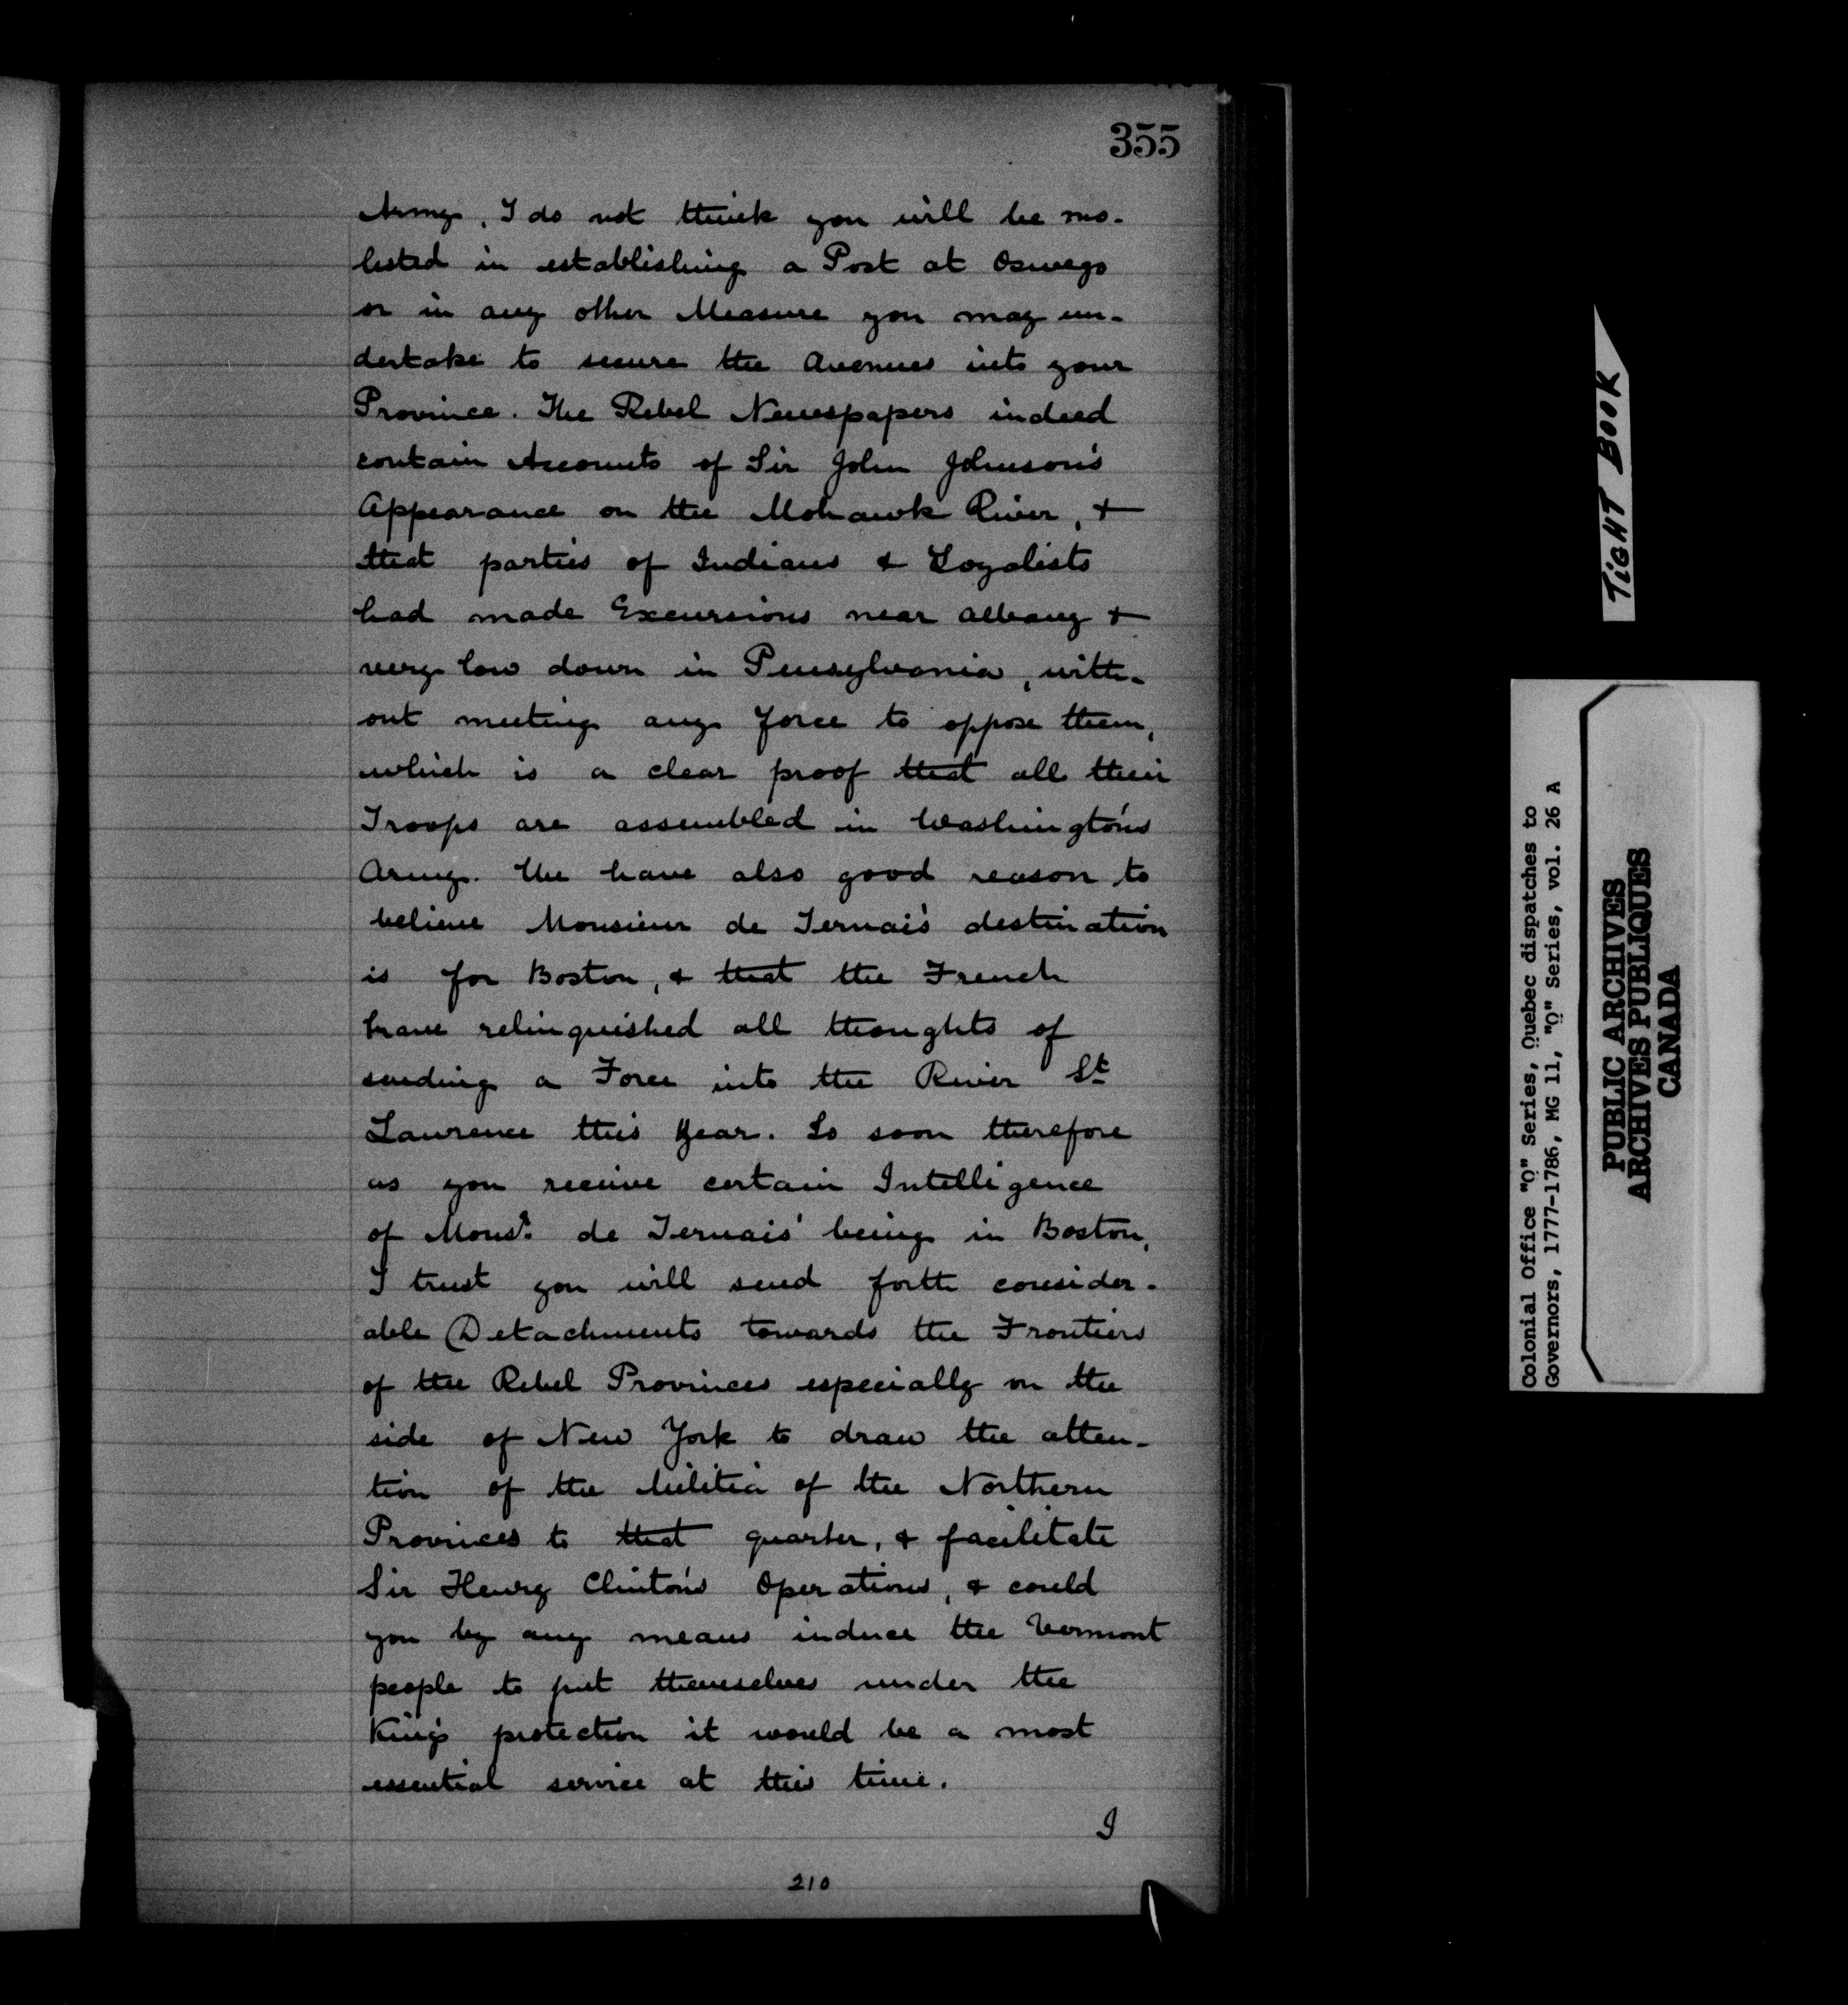 355
Army, I do not think you will be mo-
lested in establishing a Post at Oswego
or in any other Measure you may un-
dertake to secure the Avenues into your
Province. The Rebel Newspapers indeed
contain Accounts of Sir John Johnson's
Appearance on the Mohawk River, &
that parties of Indians & Loyalists
had made Excursions near Albany &
very low down in Pensylvania, with-
out meeting any force to oppose them,
which is a clear proof that all their
Troops are assembled in Washington's
Army. We have also good reason to
believe Monsieur de Ternai's destination
is for Boston, & that the French
have relinquished all thoughts of
sending a Force into the River St
Lawrence this Year. So soon therefore
as you receive certain Intelligence
of Monsr. de Ternais' being in Boston,
I trust you will send forth consider-
able Detachments towards the Frontiers
of the Rebel Provinces especially on the
side of New York to draw the atten-
tion of the Militia of the Northern
Provinces to that quarter, & facilitate
Sir Henry Clinton's Operations, & could
you by any means induce the Vermont
people to put themselves under the
King's protection it would be a most
essential service at this time.
I
210
TIGHT BOOK
Colonial Office "Q" Series, Quebec dispatches to
Governors, 1777-1786, MG 11, "Q" Series, vol. 26 A
PUBLIC ARCHIVES
ARCHIVES PUBLIQUES
CANADA